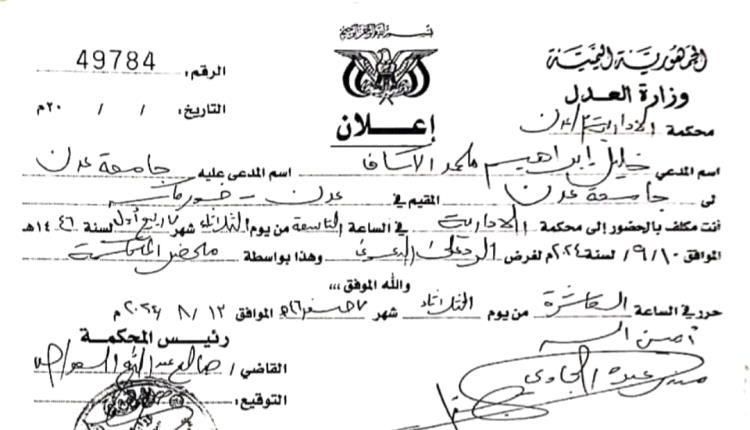 بسم الله الرحمن الرحيم
الجمهورية اليمنية
وزارة العدل
الرقم: 49784
محكمة الادارية م/عدن
التاريخ: / / ٢٠م
إعلان
اسم المدعي خليل ابراهيم محمد الاسكاف اسم المدعى عليه جامعة عدن
لى جامعة عدن المقيم في عدن - خورمكسر
أنت مكلف بالحضور إلى محكمة الادارية في الساعة التاسعة من يوم الثلاثاء شهر ٧ ربيع أول لسنة ١٤٤٦هـ
الموافق ٩/١٠/ لسنة ٢٠٢٤م لغرض الرد على الدعوى وهذا بواسطة محضر المحكمة
والله الموفق ،،،
حرر في الساعة العاشرة من يوم الثلاثاء شهر ٧ صفر ٤٦هـ الموافق ١٣ / ٨ / ٢٠٢٤م
أمين السر
رئيس المحكمة
القاضي / صالح عبد
عبده
التوقيع: